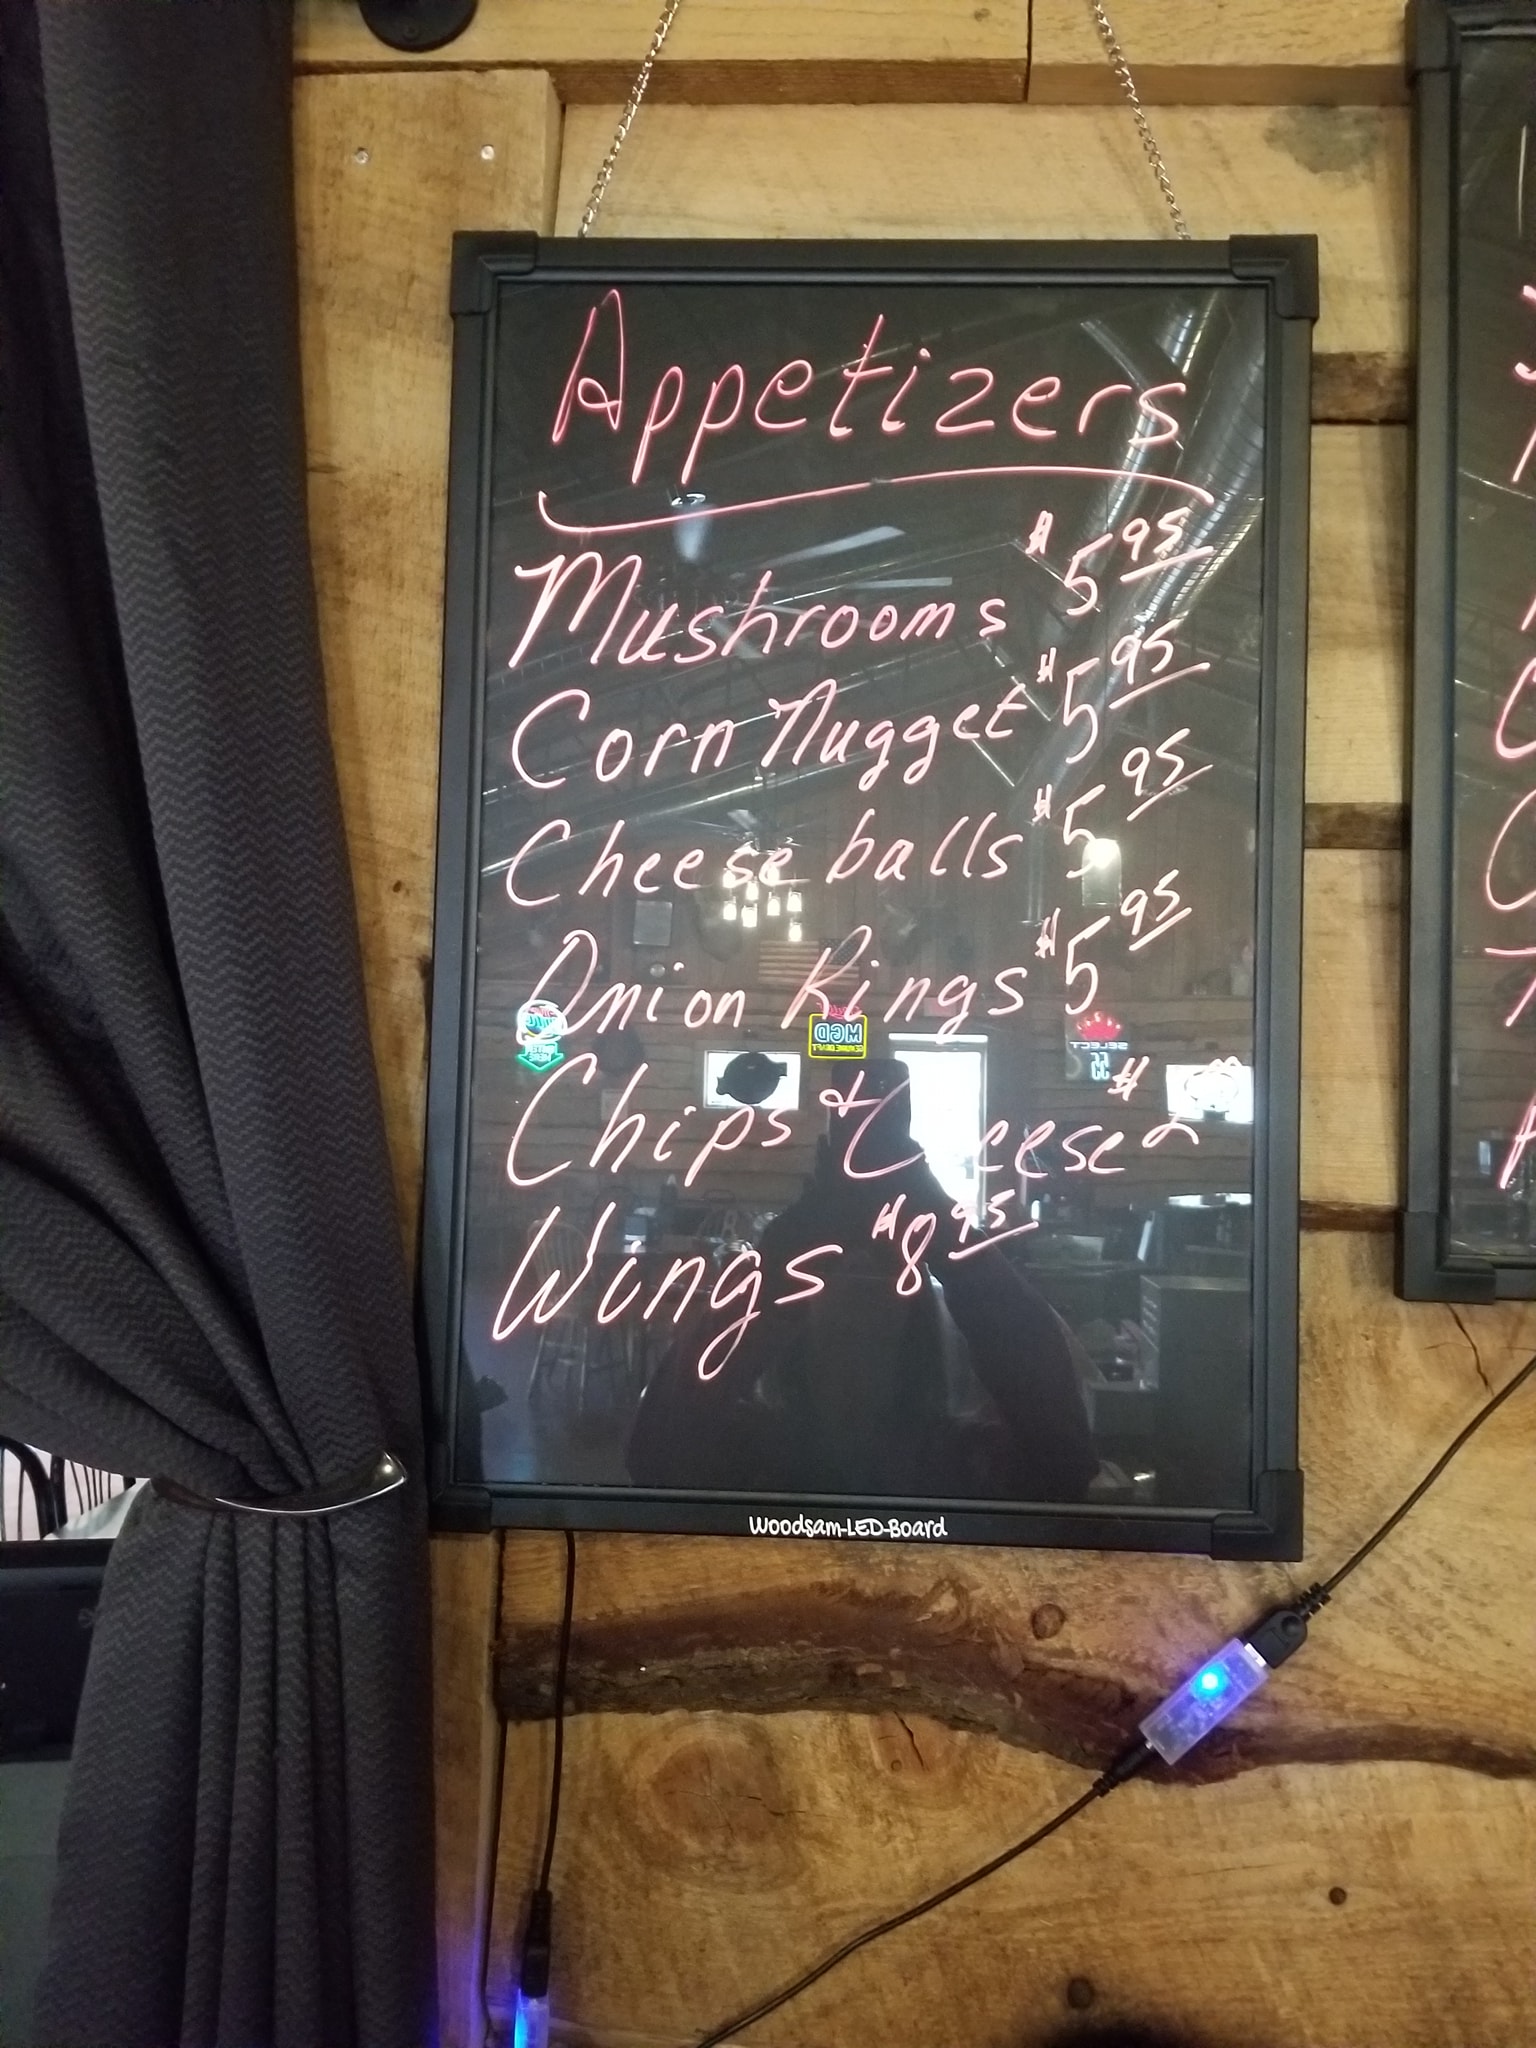 Appetizers
Mushrooms $5.95
Corn Nugget $5.95
Cheese balls $5.95
Onion Rings $5.95
Chips & Cheese $
Wings $8.95
Woodsam-LED-Board
MGD
SELECT
55